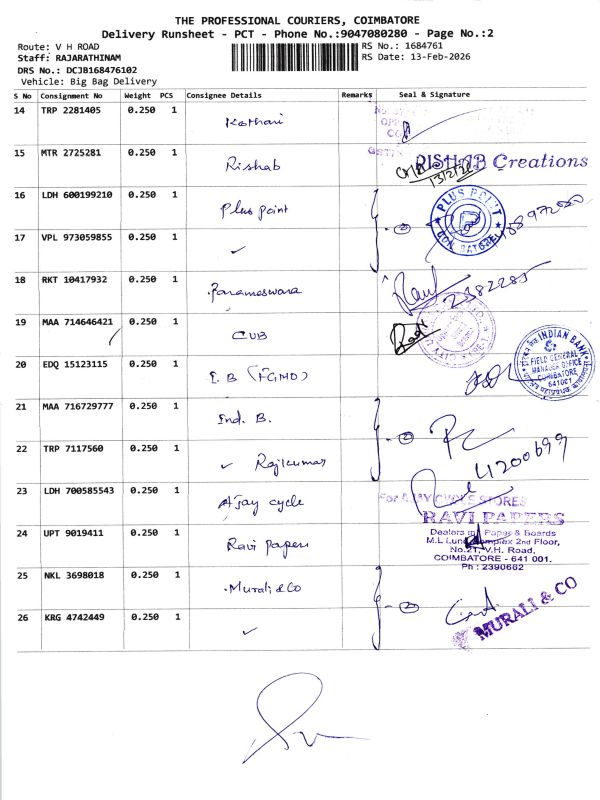 THE PROFESSIONAL COURIERS, COIMBATORE
Delivery Runsheet - PCT - Phone No.:9047080280 - Page No.:2
Route: V H ROAD
RS No.: 1684761
Staff: RAJARATHINAM
RS Date: 13-Feb-2026
DRS No.: DCJB168476102
Vehicle: Big Bag Delivery
S No Consignment No Weight PCS Consignee Details Remarks Seal & Signature
14 TRP 2281405 0.250 1 Kothari
15 MTR 2725281 0.250 1 Rishab RISHAB Creations
13/2/26
16 LDH 600199210 0.250 1 Plus point PLUS POINT COIMBATORE
17 VPL 973059855 0.250 1 ✓
18 RKT 10417932 0.250 1 Parameswara 2382285
19 MAA 714646421 0.250 1 CUB
20 EDQ 15123115 0.250 1 I.B (FGMO) INDIAN BANK
FIELD GENERAL
MANAGER OFFICE
COIMBATORE
641001
21 MAA 716729777 0.250 1 Ind. B.
22 TRP 7117560 0.250 1 ✓ Rajkumar 4200699
23 LDH 700585543 0.250 1 Ajay cycle For AJAY CYCLE STORES
RAVI PAPERS
24 UPT 9019411 0.250 1 Ravi papers Dealers in Paper & Boards
Complex 2nd Floor,
No.21, V.H. Road,
COIMBATORE - 641 001.
Ph : 2390662
25 NKL 3698018 0.250 1 Murali & Co
26 KRG 4742449 0.250 1 ✓ MURALI & CO